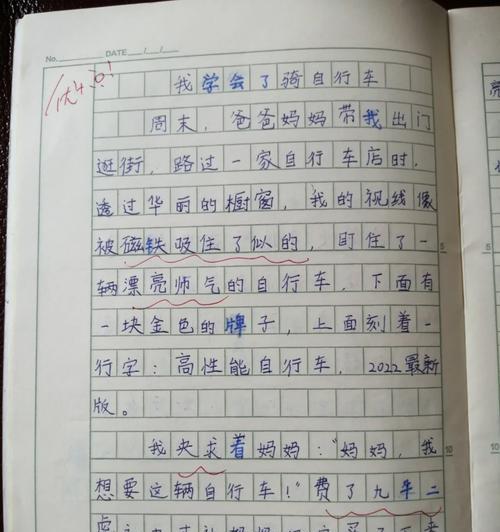 No.
DATE / /
我学会了骑自行车
周末，爸爸妈妈带我出门
逛街，路过一家自行车店时，
透过华丽的橱窗，我的视线像
被磁铁吸住了似的，盯住了一
辆漂亮师气的自行车，下面有
一块金色的牌子，上面刻着一
行字：高性能自行车，2022最新
版。
我央求着妈妈：“妈妈，我
想要这辆自行车！”费了九牛二
5
5
10
10